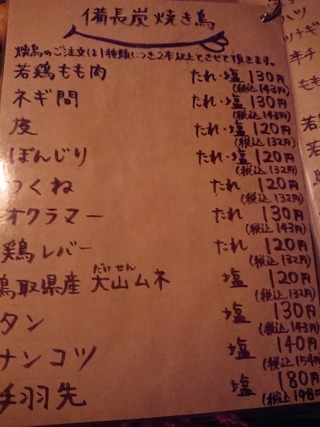 備長炭焼き鳥
焼鳥のご注文は1種類につき2本以上とさせて頂きます。
若鶏もも肉 たれ・塩 130円
(税込143円)
ネギ間 たれ・塩 130円
(税込143円)
皮 たれ・塩 120円
(税込132円)
ぼんじり たれ・塩 120円
(税込132円)
つくね たれ 120円
(税込132円)
オクラマー たれ 130円
(税込143円)
鶏レバー たれ 120円
(税込132円)
だいせん
鳥取県産 大山ムネ 塩 120円
(税込132円)
タン 塩 130円
(税込143円)
ナンコツ 塩 140円
(税込154円)
手羽先 塩 180円
(税込198円)